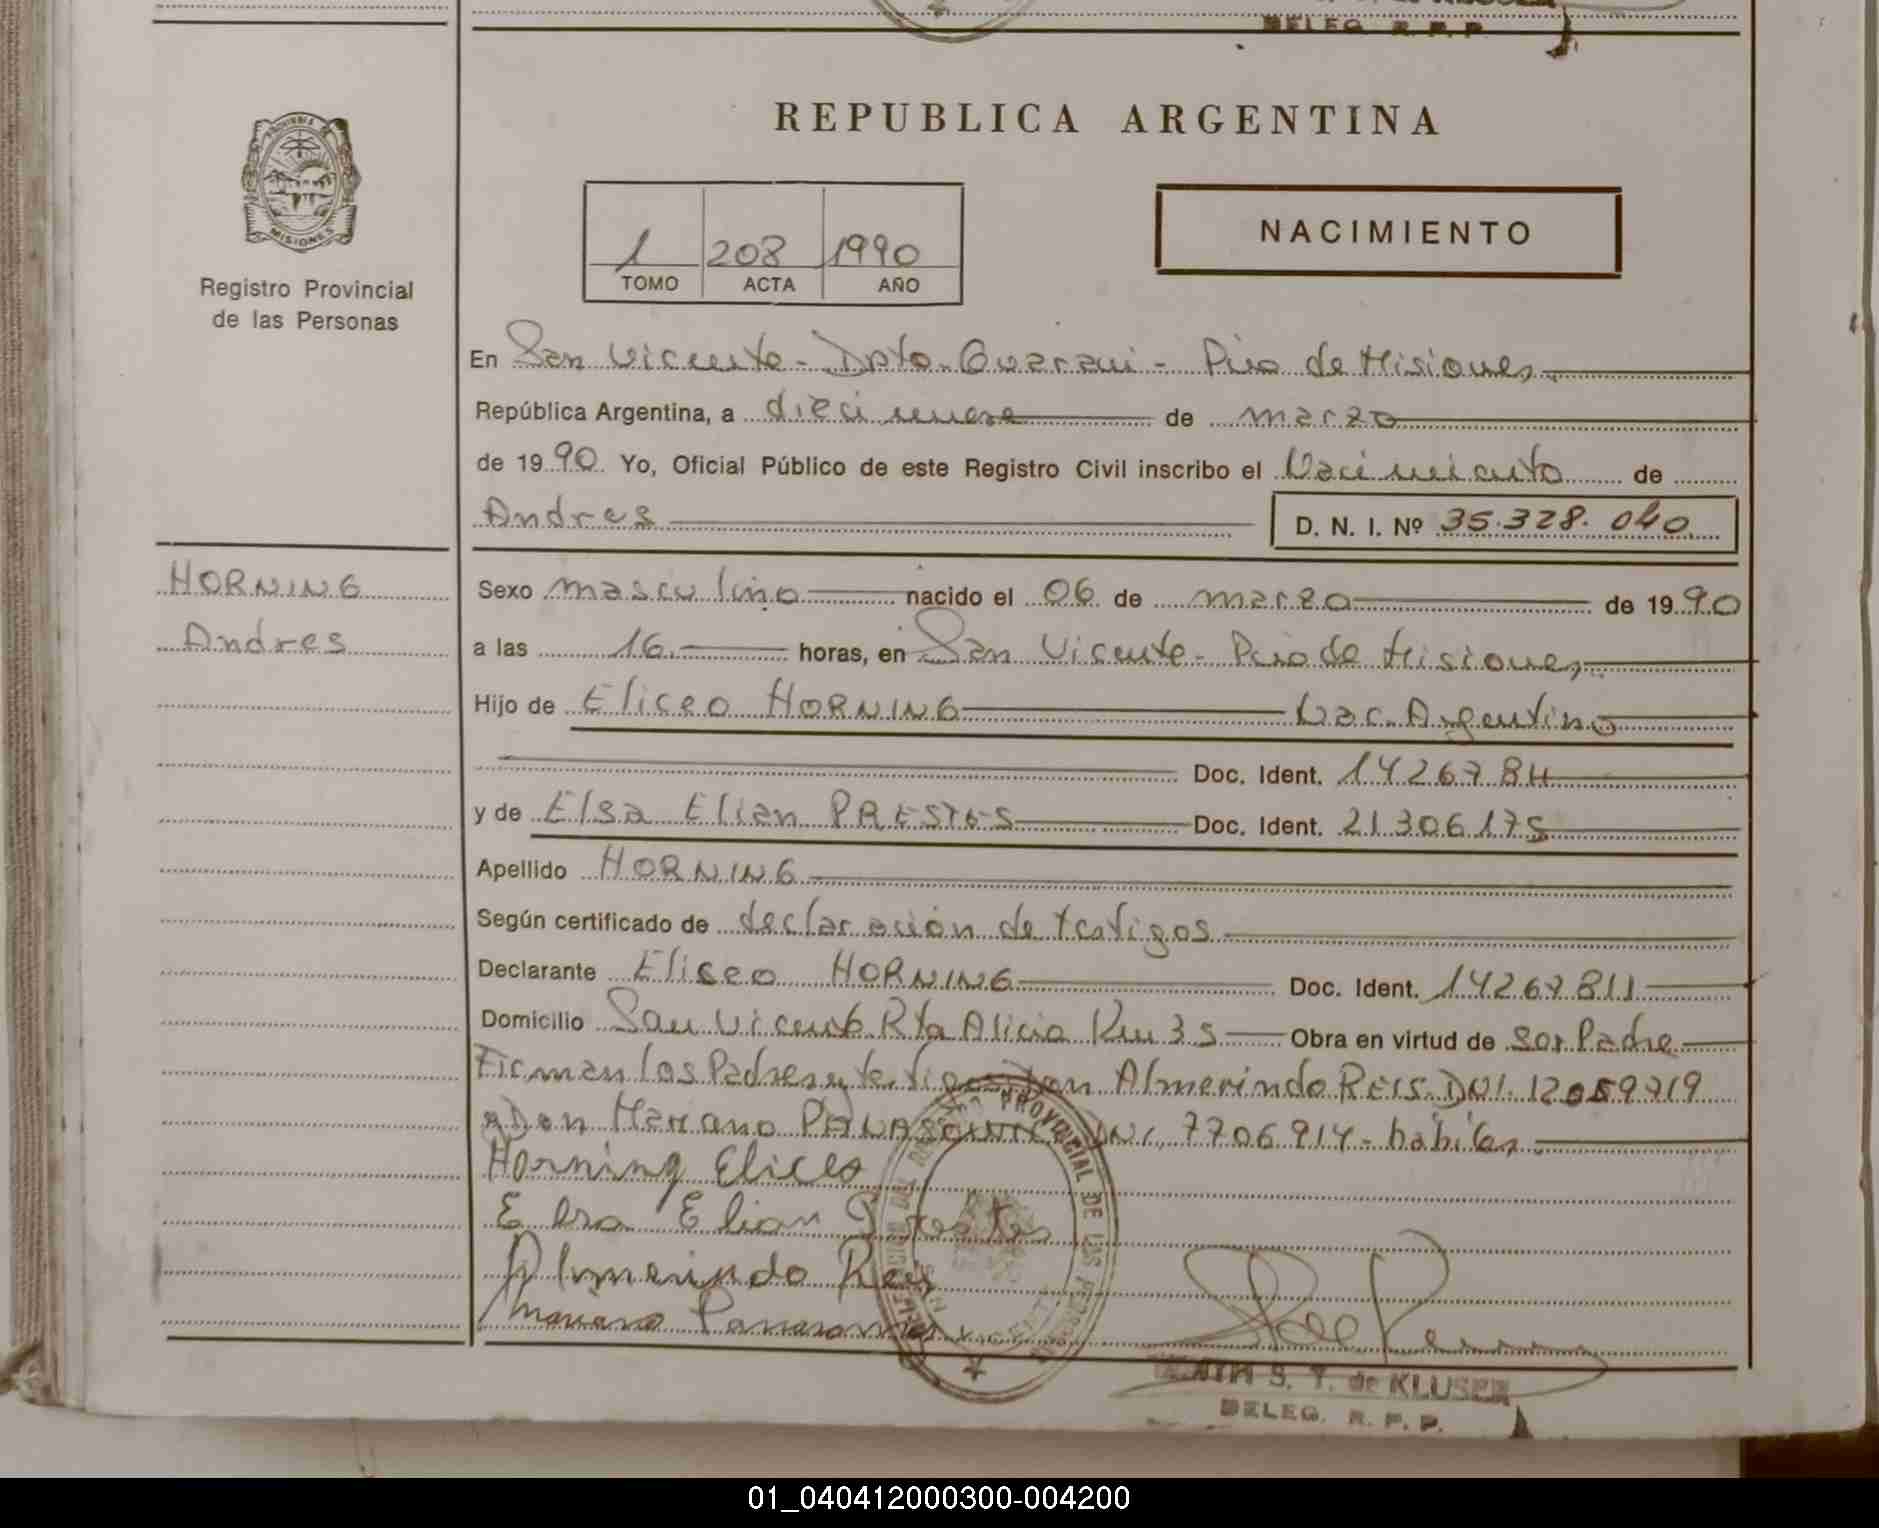 DELEG. R. P. P.
REPUBLICA ARGENTINA
PROVINCIA DE
MISIONES
Registro Provincial
de las Personas
1 208 1990
TOMO ACTA AÑO
NACIMIENTO
En San Vicente - Dpto. Guarani - Pcia de Misiones
República Argentina, a dieci nueve de marzo
de 1990 Yo, Oficial Público de este Registro Civil inscribo el Nacimiento de
Andres D. N. I. Nº 35.328.040
HORNING
Andres
Sexo masculino nacido el 06 de marzo de 1990
a las 16 horas, en San Vicente - Pcia de Misiones
Hijo de Eliceo HORNING Nac. Argentino
Doc. Ident. 14267811
y de Elsa Elian PRESTES Doc. Ident. 21306175
Apellido HORNING
Según certificado de declaración de testigos
Declarante Eliseo HORNING Doc. Ident. 14267811
Domicilio San Vicente Rta Alicia Km 35 Obra en virtud de ser Padre
Firman los Padres y testigos Don Almerindo REIS. DNI. 12059719
y Don Mariano DNI. 7706914 - habiles
Horning Eliceo
Elsa Elian Prestes
Almerindo Reis
Mariano
PROVINCIAL DE LAS PERSONAS
S. T. de KLUSER
DELEG. R. P. P.
01_040412000300-004200